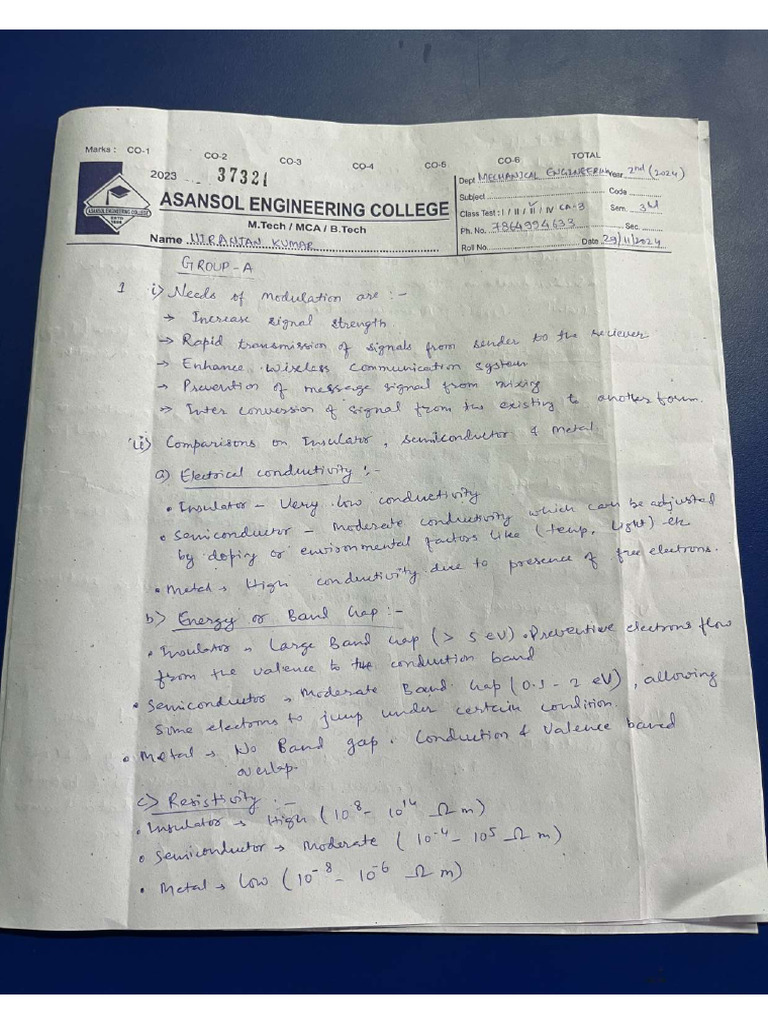 Marks : CO-1 CO-2 CO-3 CO-4 CO-5 CO-6 TOTAL
2023 37321
ASANSOL ENGINEERING COLLEGE
M.Tech / MCA / B.Tech
Name NIRANJAN KUMAR
ASANSOL ENGINEERING COLLEGE
ESTD
1998
Dept MECHANICAL ENGINEERING Year 2nd (2024)
Subject Code
Class Test : I / II / III / IV CA-3 Sem. 3rd
Ph. No. 7864994633 Sec.
Roll No. Date 29/11/2024
GROUP-A
1 i) Needs of modulation are :-
→ Increase signal strength.
→ Rapid transmission of signals from sender to the reciever
→ Enhance wireless communication system
→ Prevention of message signal from mixing
→ Inter conversion of signal from the existing to another form.
ii) Comparisons on Insulator, semiconductor & metal
a) Electrical conductivity :-
• Insulator - Very low conductivity
• Semiconductor - Moderate conductivity which can be adjusted
by doping or environmental factors like (temp, light) etc
• Metal → High conductivity due to presence of free electrons.
b) Energy or Band Gap :-
• Insulator → Large Band Gap (> 5 eV). Preventive electrons flow
from the valence to the conduction band
• Semiconductor → Moderate Band Gap (0.1 - 2 eV), allowing
some electrons to jump under certain condition.
• Metal → No Band gap. Conduction & Valence band
overlap.
c) Resistivity :-
• Insulator → High (10⁸ - 10¹⁴ Ω m)
• Semiconductor → Moderate (10⁻⁴ - 10⁵ Ω m)
• Metal → Low (10⁻⁸ - 10⁻⁶ Ω m)